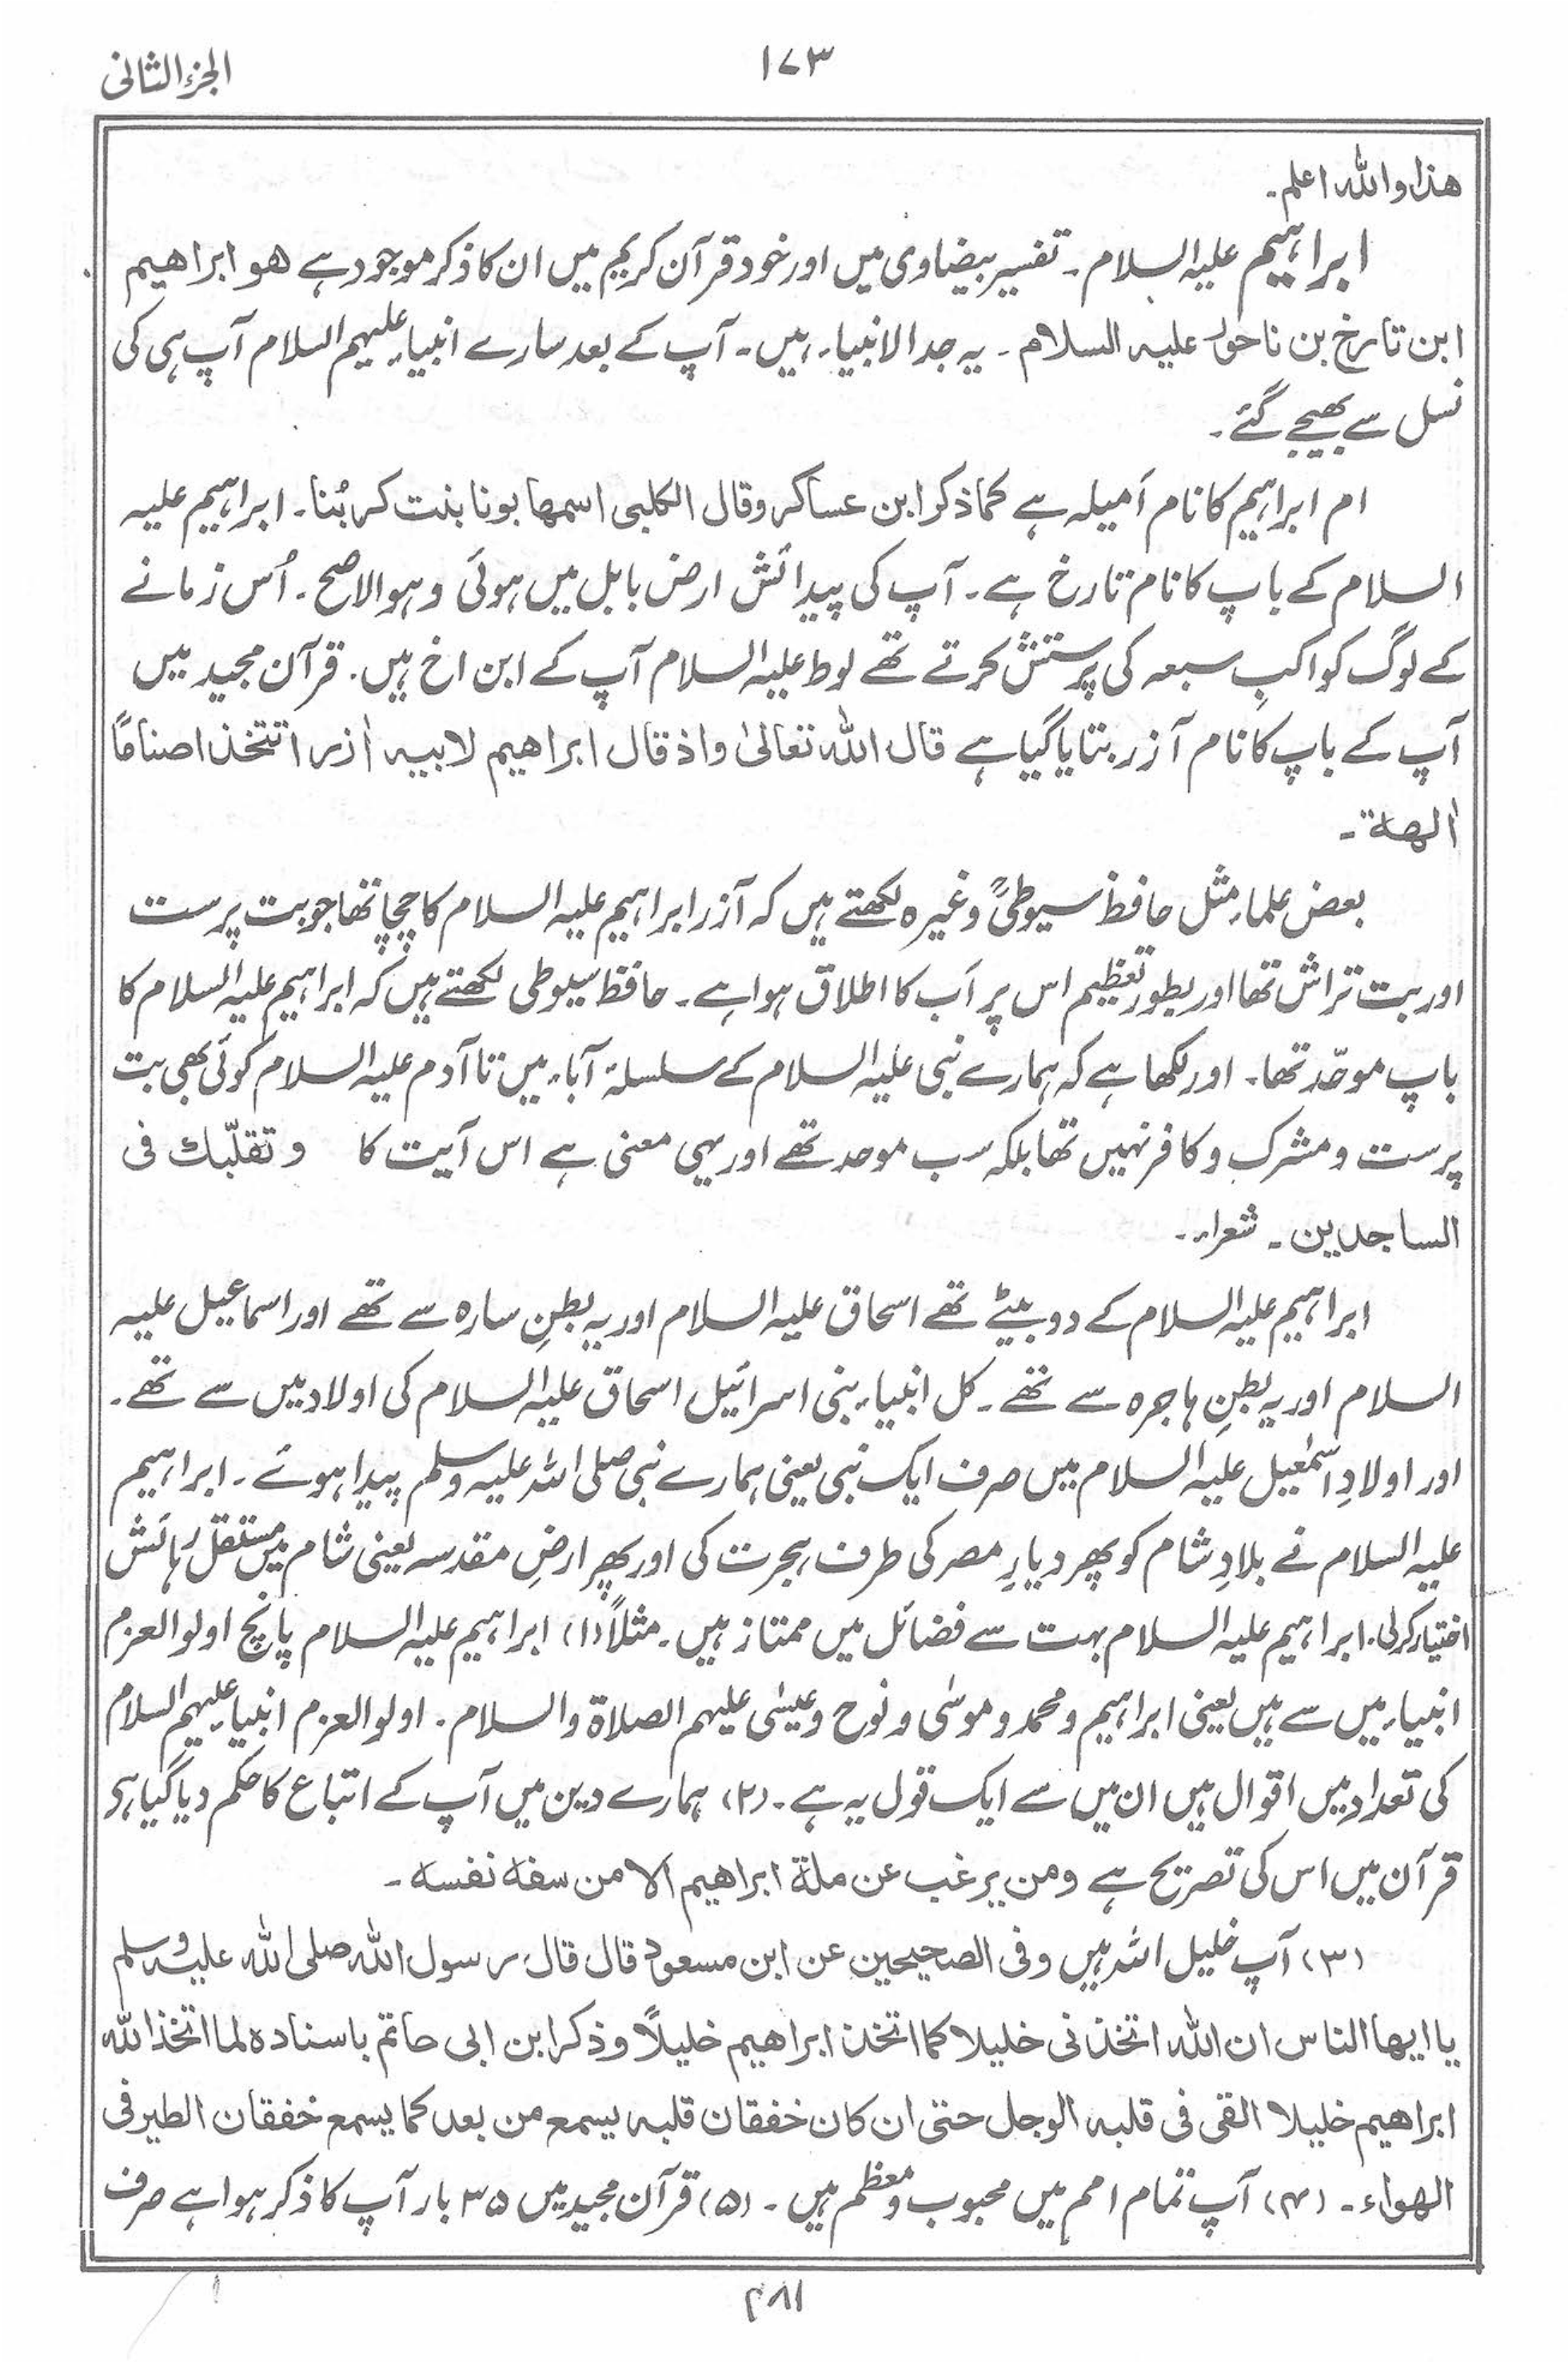 الجزء الثانی
۱۷۳
ھذا واللہ اعلم۔
ابراہیم علیہ السلام۔ تفسیر بیضاوی میں اور خود قرآن کریم میں ان کا ذکر موجود ہے ھو ابراھیم
ابن تارخ بن ناحور علیہ السلام۔ یہ جد الانبیاء ہیں۔ آپ کے بعد سارے انبیاء علیہم السلام آپ ہی کی
نسل سے بھیجے گئے۔
ام ابراہیم کا نام اَمیلہ ہے کما ذکر ابن عساکر وقال الکلبی اسمھا بونا بنت کربُنا۔ ابراہیم علیہ
السلام کے باپ کا نام تارخ ہے۔ آپ کی پیدائش ارض بابل میں ہوئی وہو الاصح۔ اُس زمانے
کے لوگ کواکبِ سبعہ کی پرستش کرتے تھے لوط علیہ السلام آپ کے ابن اخ ہیں۔ قرآن مجید میں
آپ کے باپ کا نام آزر بتایا گیا ہے قال اللہ تعالیٰ واذ قال ابراھیم لابیہ اٰزر اتتخذ اصنامًا
اٰلھة۔
بعض علماء مثل حافظ سیوطیؒ وغیرہ لکھتے ہیں کہ آزر ابراہیم علیہ السلام کا چچا تھا جو بت پرست
اور بت تراش تھا اور بطور تعظیم اس پر اَب کا اطلاق ہوا ہے۔ حافظ سیوطی لکھتے ہیں کہ ابراہیم علیہ السلام کا
باپ موحّد تھا۔ اور لکھا ہے کہ ہمارے نبی علیہ السلام کے سلسلۂ آباء میں تا آدم علیہ السلام کوئی بھی بت
پرست و مشرک و کافر نہیں تھا بلکہ سب موحد تھے اور یہی معنی ہے اس آیت کا وتقلّبك فی
الساجدین۔ شعراء۔
ابراہیم علیہ السلام کے دو بیٹے تھے اسحاق علیہ السلام اور یہ بطنِ سارہ سے تھے اور اسماعیل علیہ
السلام اور یہ بطنِ ہاجرہ سے تھے۔ کل انبیاء بنی اسرائیل اسحاق علیہ السلام کی اولاد میں سے تھے۔
اور اولادِ اسمٰعیل علیہ السلام میں صرف ایک نبی یعنی ہمارے نبی صلی اللہ علیہ وسلم پیدا ہوئے۔ ابراہیم
علیہ السلام نے بلادِ شام کو پھر دیارِ مصر کی طرف ہجرت کی اور پھر ارضِ مقدسہ یعنی شام میں مستقل رہائش
اختیار کرلی۔ ابراہیم علیہ السلام بہت سے فضائل میں ممتاز ہیں۔ مثلاً (۱) ابراہیم علیہ السلام پانچ اولوالعزم
انبیاء میں سے ہیں یعنی ابراہیم و محمد و موسٰی و نوح و عیسٰی علیہم الصلاۃ والسلام۔ اولوالعزم انبیاء علیہم السلام
کی تعداد میں اقوال ہیں ان میں سے ایک قول یہ ہے۔ (۲) ہمارے دین میں آپ کے اتباع کا حکم دیا گیا ہے
قرآن میں اس کی تصریح ہے ومن یرغب عن ملة ابراھیم الا من سفه نفسه۔
(۳) آپ خلیل اللہ ہیں وفی الصحیحین عن ابن مسعود قال قال رسول اللہ صلی اللہ علیہ وسلم
یا ایھا الناس ان اللہ اتخذنی خلیلا کما اتخذ ابراھیم خلیلاً وذکر ابن ابی حاتم باسنادہ لما اتخذ اللہ
ابراھیم خلیلا القی فی قلبہ الوجل حتی ان کان خفقان قلبہ یسمع من بعد کما یسمع خفقان الطیر فی
الھواء۔ (۴) آپ تمام امم میں محبوب و معظم ہیں۔ (۵) قرآن مجید میں ۳۵ بار آپ کا ذکر ہوا ہے صرف
۴۸۱